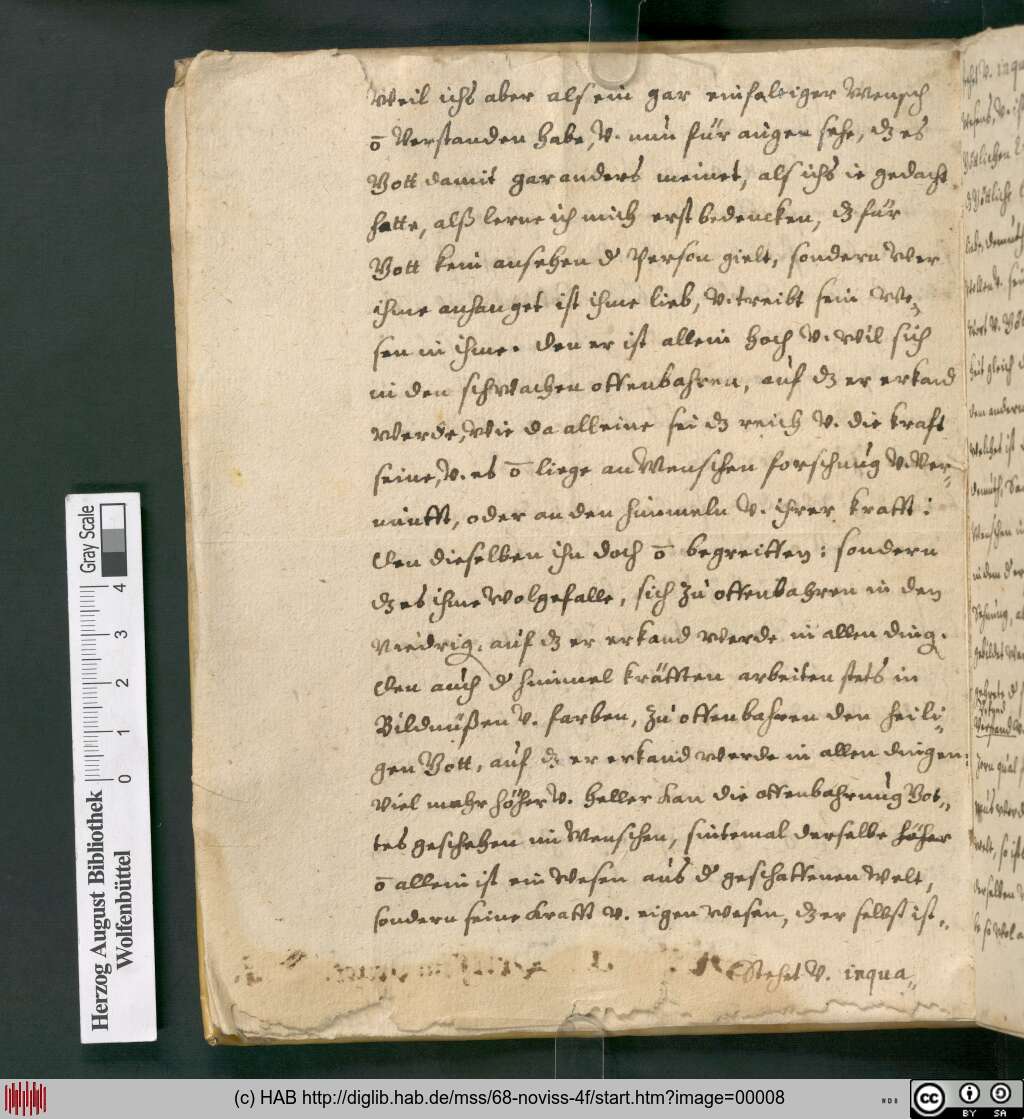 Weil ichs aber als ein gar einfaltiger Mensch
ō Verstanden habe, v. nun für augen sehe, dz es
Gott damit gar anders meinet, als ichs ie gedacht
hatte, alß lerne ich mich erst bedencken, dz für
Gott kein ansehen d Person gielt, sondern wer
ihme anhanget ist ihme lieb, v. treibt sein We„
sen in ihme. den er ist allein hoch v. wil sich
in den schwachen offenbahren, auf dz er erkand
werde, wie da alleine sei dz reich v. die kraft
seine, v. es ō liege an Menschen forschung v. Ver„
nunfft, oder an den himmeln v. ihrer krafft:
den dieselben ihn doch ō begreiffen: sondern
dz es ihme wolgefalle, sich zu offenbahren in den
Niedrig. auf dz er erkand werde in allen ding.
den auch d himmel kräfften arbeiten stets in
Bildnüßen v. farben, zu offenbahren den heili„
gen Gott, auf dz er erkand werde in allen dingen:
Viel mehr höher v. heller kan die offenbahrung Got„
tes geschehen im Menschen, sintemal derselbe höher
ō allein ist ein Wesen aus d geschaffenen Welt,
sondern seine krafft v. eigen wesen, dz er selbst ist„
Stehet v. inqua„
Gray Scale
0 1 2 3 4
Herzog August Bibliothek
Wolfenbüttel
(c) HAB http://diglib.hab.de/mss/68-noviss-4f/start.htm?image=00008
WDB
cc BY SA